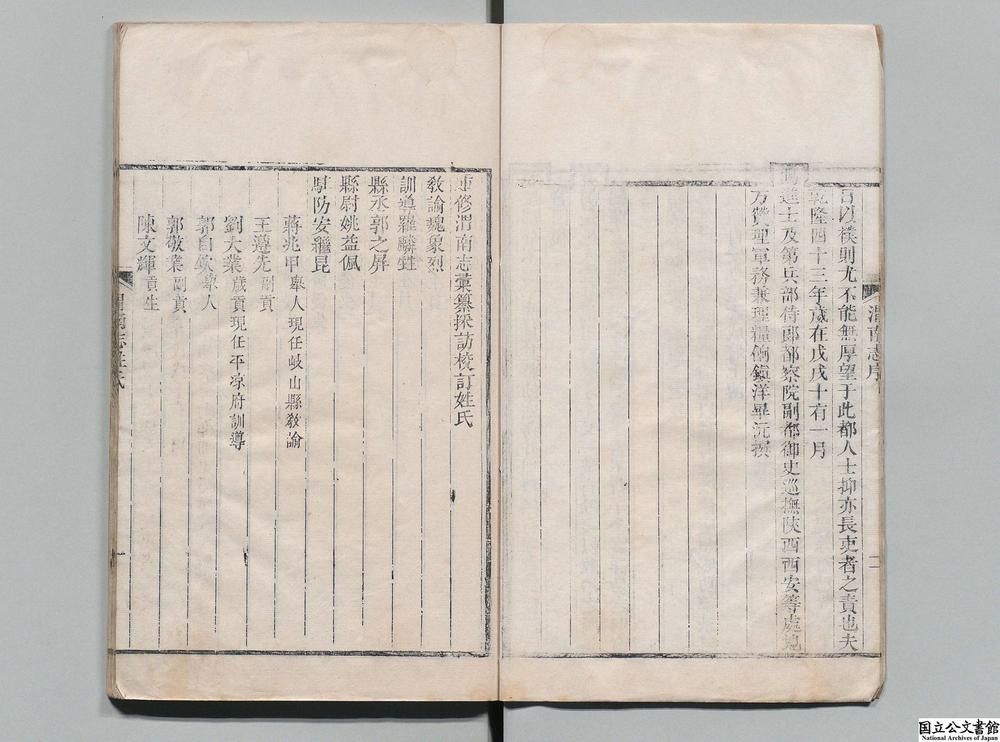 言以樸則尤不能無厚望于此都人士抑亦長吏者之責也夫
乾隆四十三年歲在戊戌十有一月
賜進士及第兵部侍郎都察院副都御史巡撫陝西西安等處地
方贊理軍務兼理糧餉鎮洋畢沅撰
渭南志序
二
重修渭南志藁纂採訪校訂姓氏
教諭魏象烈
訓導羅麟甡
縣丞郭之屏
縣尉姚益佩
駐防安繼昆
蔣兆甲舉人現任岐山縣教諭
王遵先副貢
劉大業歲貢現任平凉府訓導
郭自欽舉人
郭敬業副貢
陳文輝貢生
渭南志姓氏
一
国立公文書館
National Archives of Japan